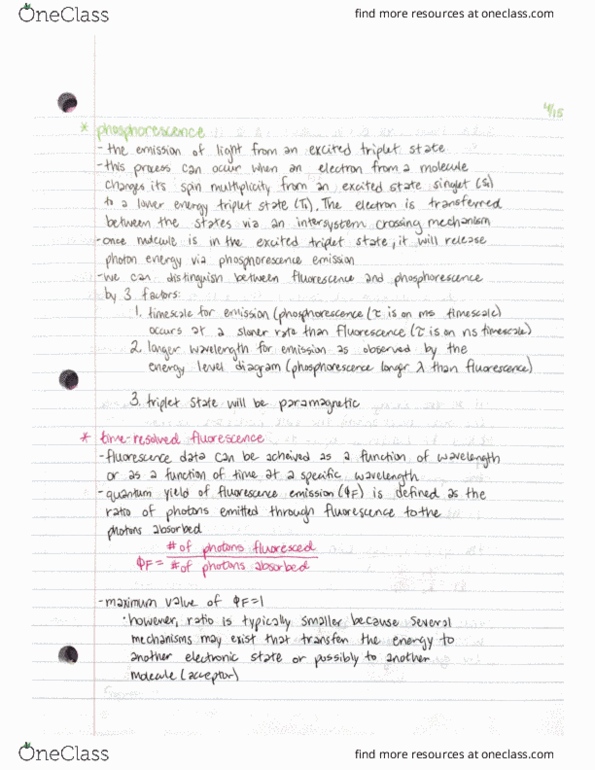 OneClass
find more resources at oneclass.com
4/15
* phosphorescence
- the emission of light from an excited triplet state
- this process can occur when an electron from a molecule
changes its spin multiplicity from an excited state singlet (S₁)
to a lower energy triplet state (T₁). The electron is transferred
between the states via an intersystem crossing mechanism
- once molecule is in the excited triplet state, it will release
photon energy via phosphorescence emission
- we can distinguish between fluorescence and phosphorescence
by 3 factors:
1. timescale for emission (phosphorescence (τ is on ms timescale)
occurs at a slower rate than fluorescence (τ is on ns timescale)
2. longer wavelength for emission as observed by the
energy level diagram (phosphorescence longer λ than fluorescence)
3. triplet state will be paramagnetic
* time-resolved fluorescence
- fluorescence data can be acheived as a function of wavelength
or as a function of time at a specific wavelength
- quantum yield of fluorescence emission (ϕF) is defined as the
ratio of photons emitted through fluorescence to the
photons absorbed
# of photons fluoresced
ϕF = # of photons absorbed
- maximum value of ϕF=1
• however, ratio is typically smaller because several
mechanisms may exist that transfer the energy to
another electronic state or possibly to another
molecule (acceptor)
OneClass
find more resources at oneclass.com